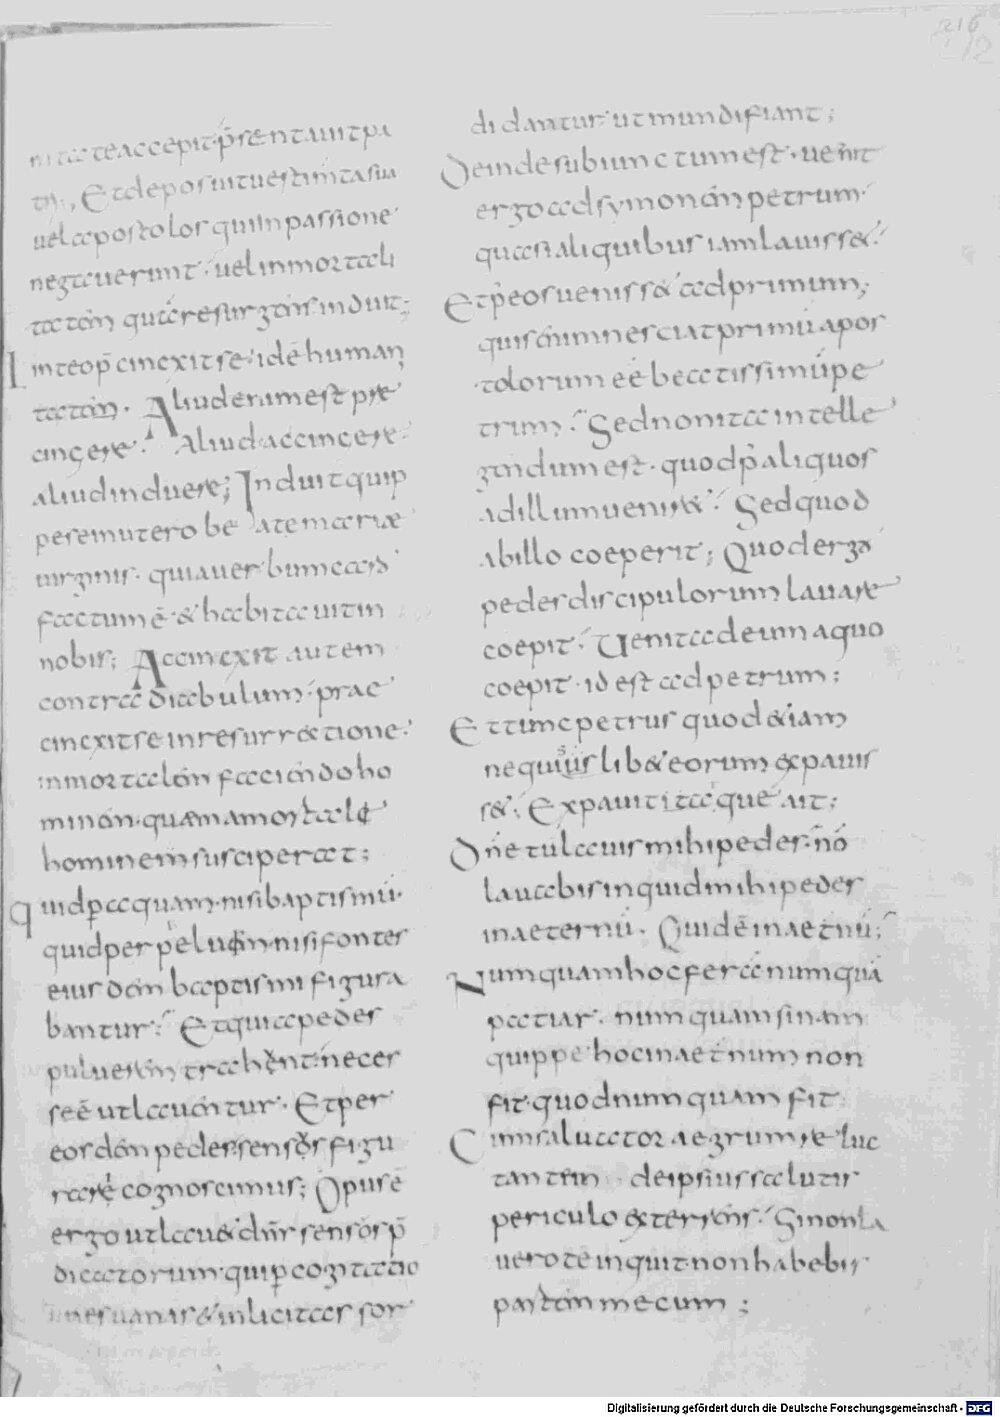 216
nitate accepit p̄sentauit pa
tri., Et deposuit uestim̄ta sua
uel apostolos qui in passione
negauerunt. uel inmortali
tatem qua resurgens induit;
Linteo p̄cinexit se. id ē human
tatem. Aliud enim est prae
cingere. Aliud accingere.
aliud induere; Induit quip
pe se in utero beatae mariae
uirginis. quia uerbum caro
factum ē. & habitauit in
nobis; Accinexit autem
contra diabulum. prae
cinexit se in resurrectione.
inmortalem faciendo ho
minem. quam a mortale
hominem susciperat;
Quid p̄ aquam. nisi baptismū.
quid per peluem. nisi fontes
eiusdem baptismi figura
bantur. Et quia pedes
puluerem trahent. neces
seē ut lauentur. Et per
eosdem pedes. sensos figu
rare cognoscimus; Opus ē
ergo ut lau& dn̄s sensos p̄
dicatorum. quia p̄ cogitatio
nes uanas & inlicitas sor
didantur. ut mundi fiant;
Deinde subiunctum est. uenit
ergo ad symonem petrum.
quasi aliquibus iam lauiss&.
Et p̄ eos ueniss& ad primum;
quis enim nesciat primū apos
tolorum eē beatissimū pe
trum. Sed non ita intelle
gendum est. quod p̄ aliquos
ad illum uenir&. Sed quod
ab illo coeperit; Quod ergo
pedes discipulorum lauare
coepit. Uenit ad eum a quo
coepit. id est ad petrum;
Et tunc petrus quod &iam
nequiuis lib& eorum expauis
s&. Expauit itaque. ait;
Dn̄e tu lauis mihi pedes. nō
lauabis inquid mihi pedes
in aeternū. Quid ē in aet̄nū;
Numquam hoc feram numquā
patiar. numquam sinam
quippe hoc in aet̄num non
fit. quod numquam fit
Cum salutator aegrum re luc
tantem de ipsius salutis
periculo exterrens. Si non la
uero te inquit. non habebis
partem mecum;
Digitalisierung gefördert durch die Deutsche Forschungsgemeinschaft - DFG